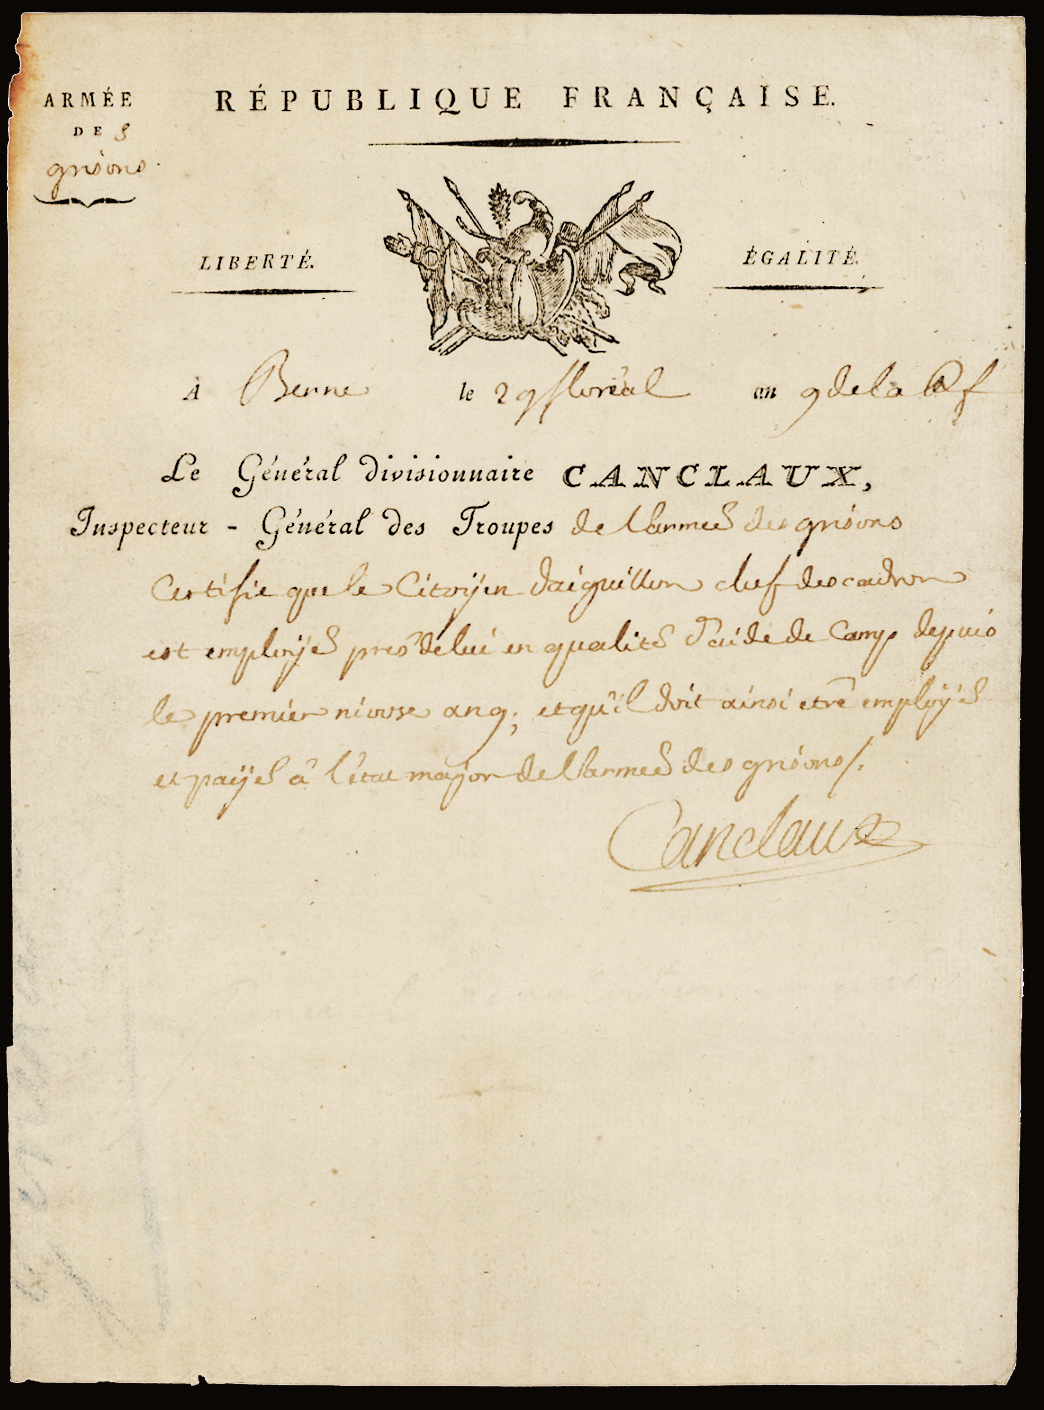 ARMÉE
DE s
grisons.
RÉPUBLIQUE FRANÇAISE.
LIBERTÉ.
ÉGALITÉ.
A Berne le 29 floréal an 9 de la Rf
Le Général divisionnaire CANCLAUX,
Inspecteur - Général des Troupes de l'armeé des grisons
Certifie que le Citoyen daiguillon chef descadron
est employé prés de lui en qualité d'aide de Camp depuis
le premier nivose an 9; et qu'il doit ainsi etre employé
et payé à l'état major de l'armeé des grisons/.
Canclaux